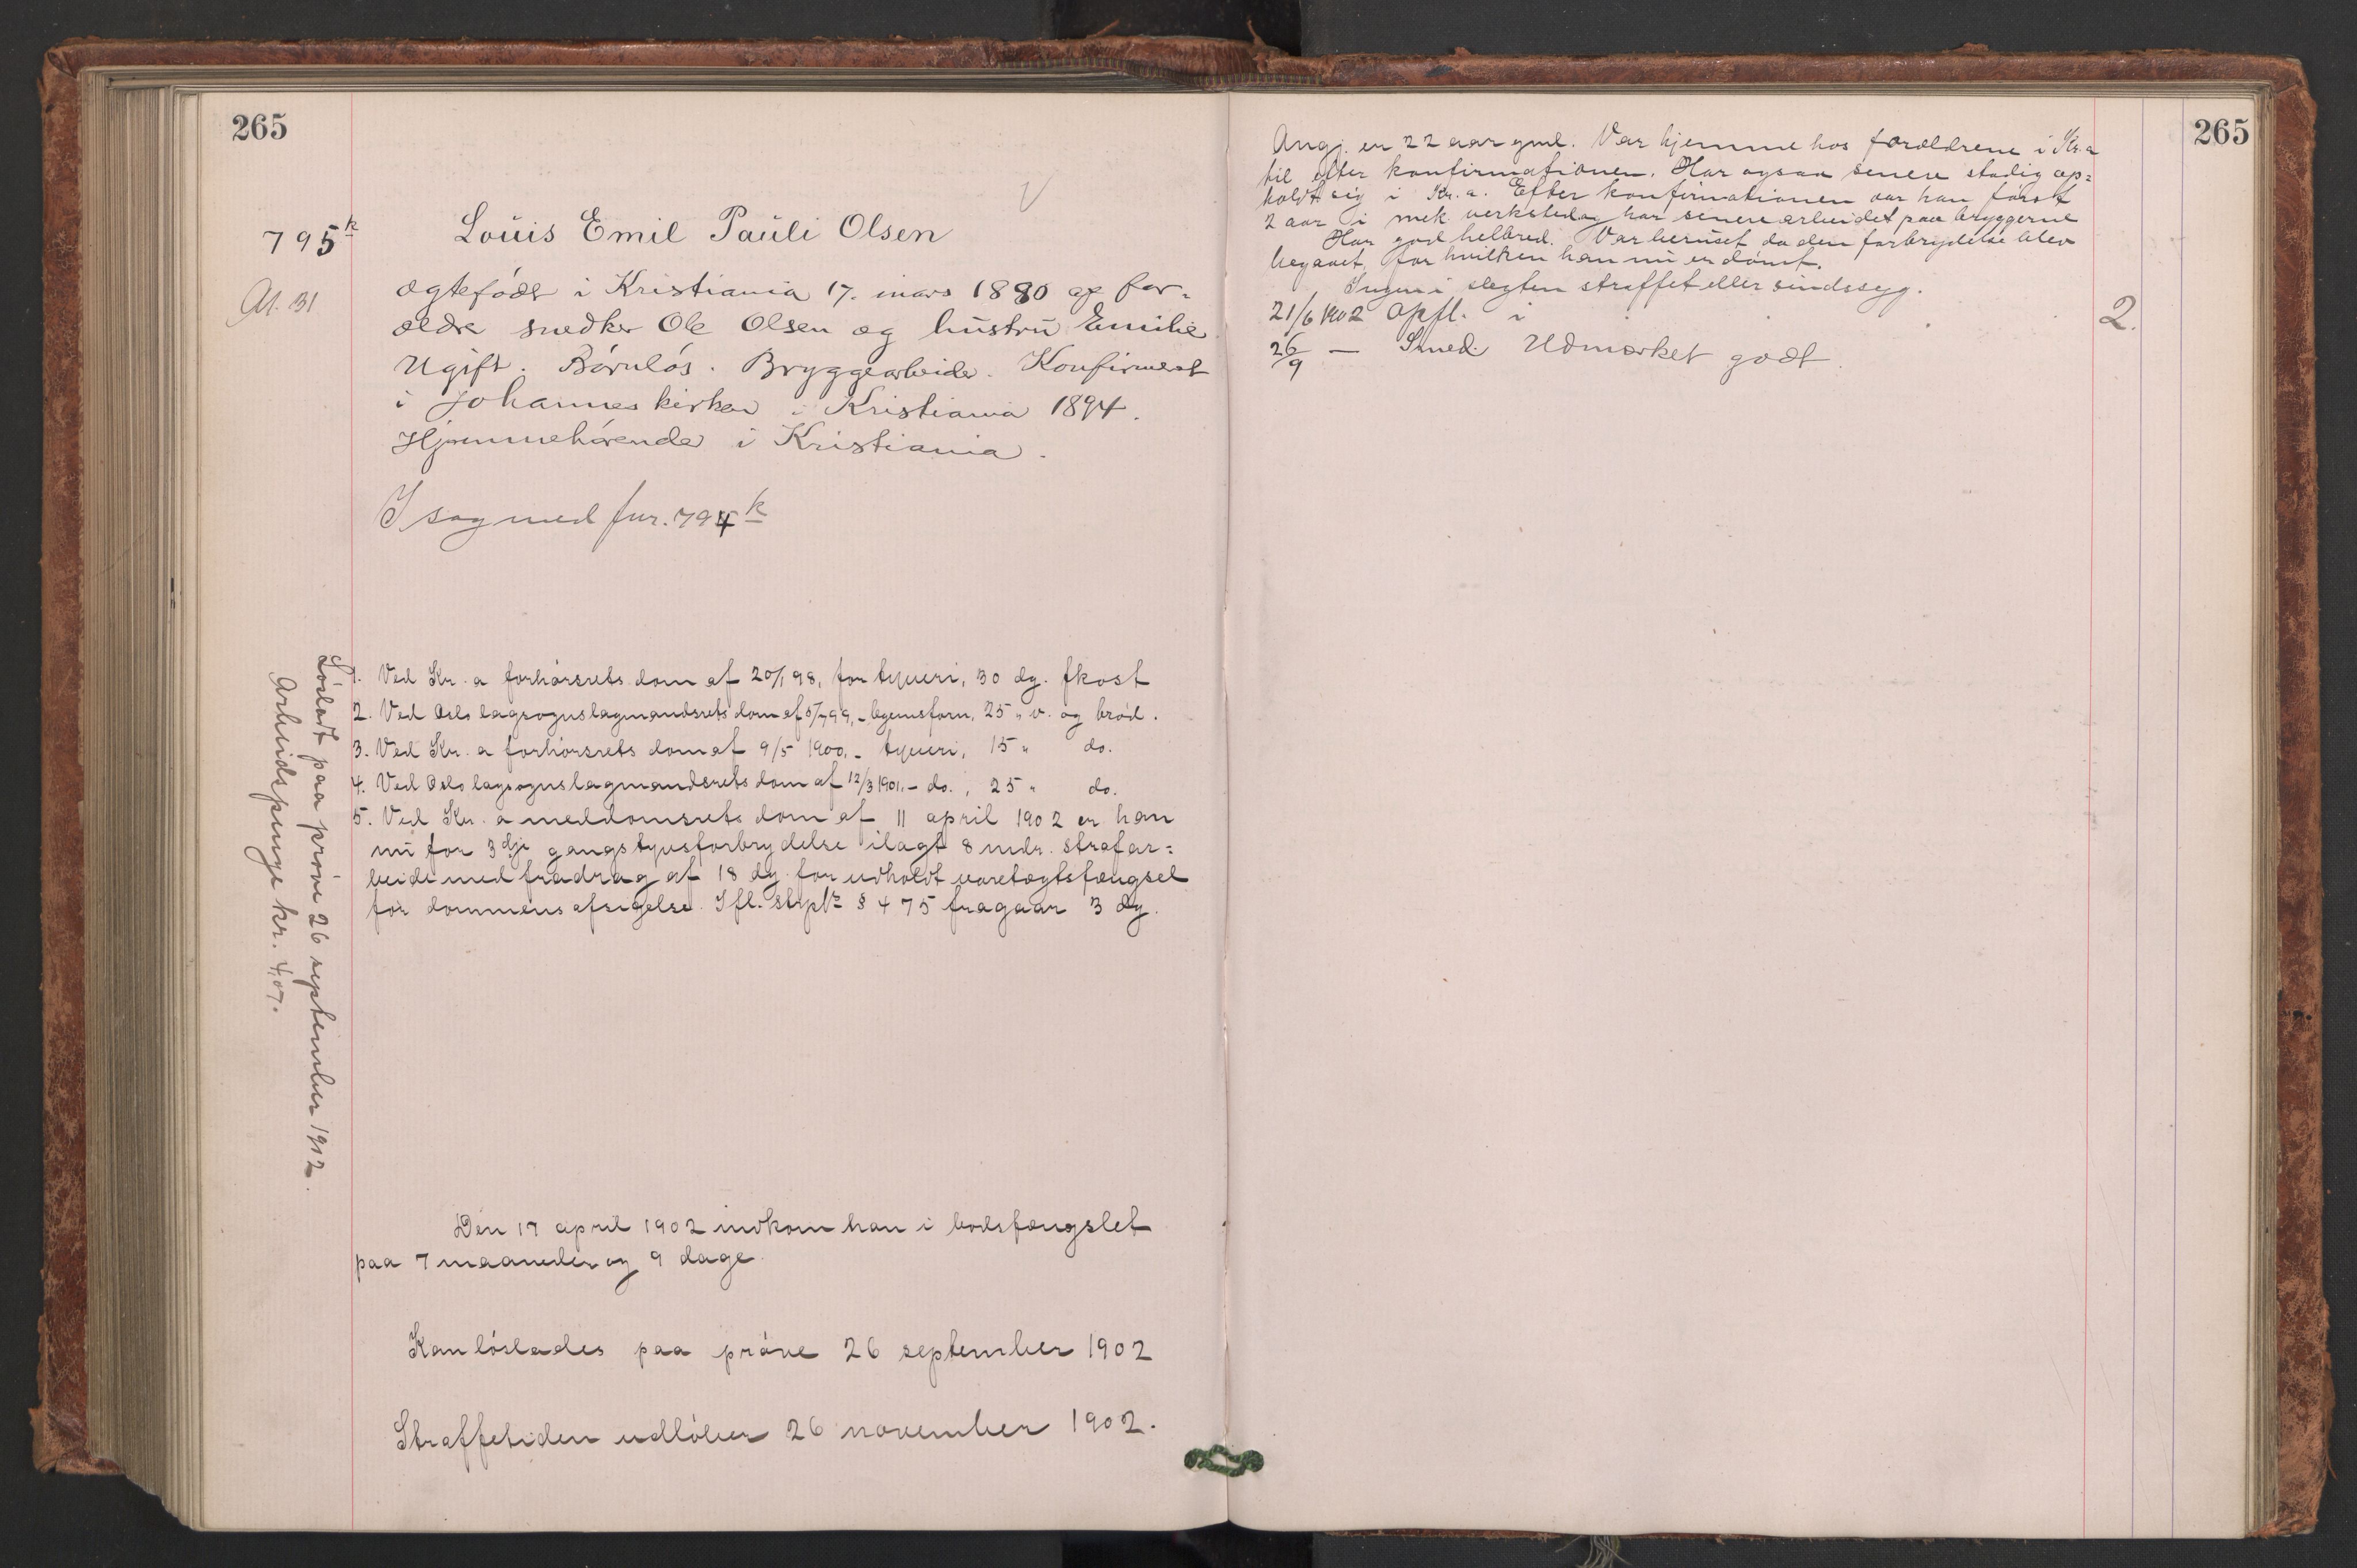 265
795 k
At. 31
Louis Emil Pauli Olsen
ægtefødt i Kristiania 17. mars 1880 af for-
ældre snedker Ole Olsen og hustru Emilie
Ugift. Børnløs. Bryggearbeider. Konfirmert
i Johanneskirken i Kristiania 1894.
Hjemmehørende i Kristiania.
I sag med fnr. 794 k
1. Ved Kr.a forhørsrets dom af 20/1 98, for tyveri, 30 dg. fkost
2. Ved Oslo lagsognslagmandsrets dom af 5/7 99, - legemsforn, 25 " v. og brød.
3. Ved Kr.a forhørsrets dom af 9/5 1900, - tyveri, 15 " do.
4. Ved Oslo lagsognslagmandsrets dom af 12/3 1901, - do., 25 " do.
5. Ved Kr.a meddomsrets dom af 11 april 1902 er han
nu for 3dje gangs tyvsforbrydelse ilagt 8 mdr. strafar=
beide med fradrag af 18 dg. for udholdt varetægtsfængsel
før dommens afsigelse. Ifl. stpl § 475 fragaar 3 dg.
Den 17 april 1902 indkom han i bodsfængslet
paa 7 maaneder og 9 dage.
Kan løslades paa prøve 26 september 1902
Straffetiden udløber 26 november 1902.
Løsladt paa prøve 26 september 1902.
Arbeidspenge kr. 4,07.
265
V
Angj. er 22 aar gml. Var hjemme hos forældrene i Kr.a
til efter konfirmationen. Har ogsaa senere stadig op=
holdt sig i Kr.a. Efter konfirmationen var han først
2 aar i mek verksted og har senere arbeidet paa bryggerne
Har god helbred. Var beruset da den forbrydelse blev
begaaet, for hvilken han nu er dømt.
Ingen i slegten straffet eller sindssyg.
21/6 1902 Opfl. i
2.
26/9 — Smed. Udmærket godt.